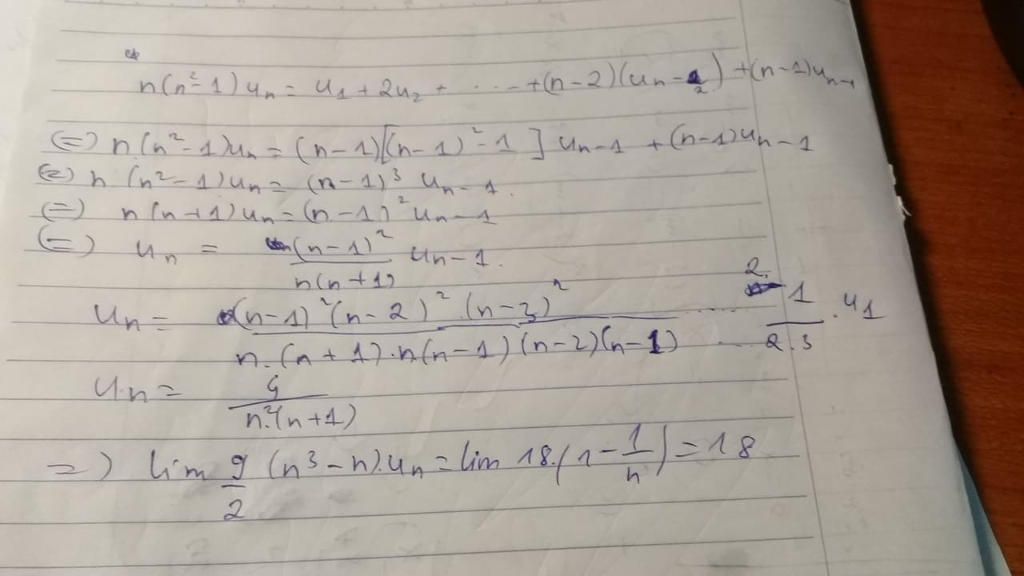 n(n²-1)uₙ = u₁ + 2u₂ + ... + (n-2)(uₙ-₂) + (n-1)uₙ-₁
(=) n(n²-1)uₙ = (n-1)[(n-1)²-1] uₙ-1 + (n-1)uₙ-1
(=) n (n²-1)uₙ = (n-1)³ uₙ-1.
(=) n(n+1)uₙ = (n-1)² uₙ-1
(=) uₙ = (n-1)²/n(n+1) uₙ-1.
uₙ = (n-1)²(n-2)².(n-3)²/n.(n+1).n(n-1)(n-2)(n-1) ..... 1/2.3 . u₁
uₙ = 4/n²(n+1)
=) lim 9/2 (n³-n).uₙ = lim 18.(1-1/n) = 18